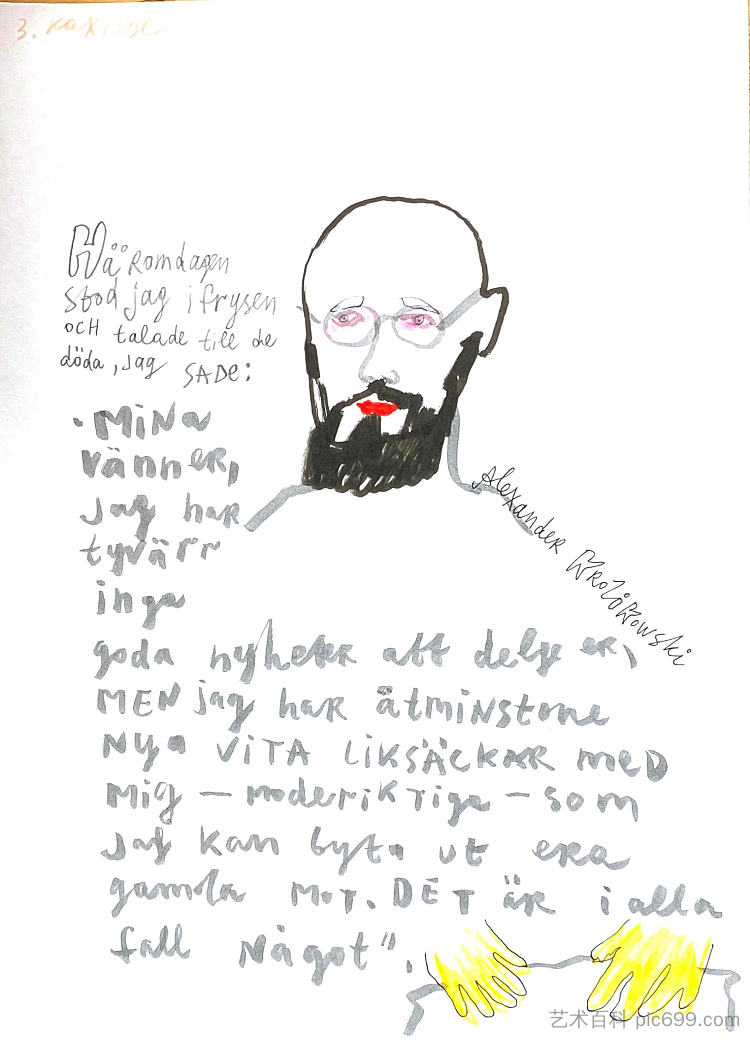 3.
Häromdagen
stod jag i frysen
OCH talade till de
döda, jag SADE:
"MINA
vänner,
jag har
tyvärr
inga
goda nyheter att delge er,
MEN jag har åtminstone
Nya VITA LIKSÄCKAR MED
Mig – moderiktiga – som
jag kan byta ut era
gamla MOT. DET är i alla
fall Något".
Alexander
艺术百科 pic699.com